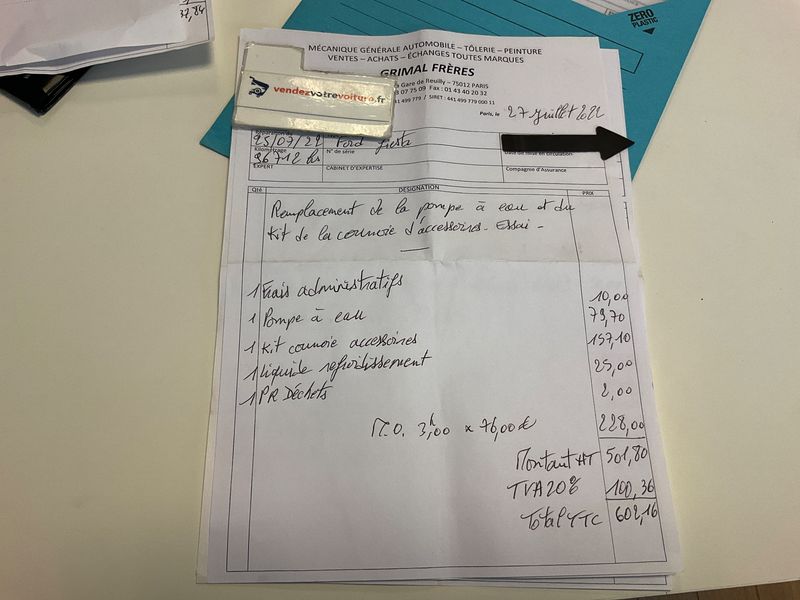 37,84
ZERO
PLASTIC
MÉCANIQUE GÉNÉRALE AUTOMOBILE – TÔLERIE – PEINTURE
VENTES – ACHATS – ÉCHANGES TOUTES MARQUES
GRIMAL FRÈRES
Gare de Reuilly – 75012 PARIS
07 75 09 Fax : 01 43 40 20 32
441 499 779 / SIRET : 441 499 779 000 11
vendezvotrevoiture.fr
Paris, le 27 Juillet 2022
25/07/22 Ford fiesta
Kilométrage N° de série Date de mise en circulation
96712 km
EXPERT CABINET D'EXPERTISE Compagnie d'Assurance
Qté DESIGNATION PRIX
Remplacement de la pompe à eau et du
Kit de la courroie d'accessoires. Essai -
1 Frais administratifs 10,00
1 Pompe à eau 79,70
1 Kit courroie accessoires 157,10
1 Liquide refroidissement 25,00
1 PR Déchets 2,00
M.O. 3h,00 x 76,00€ 228,00
Montant HT 501,80
TVA 20% 100,36
Total TTC 602,16